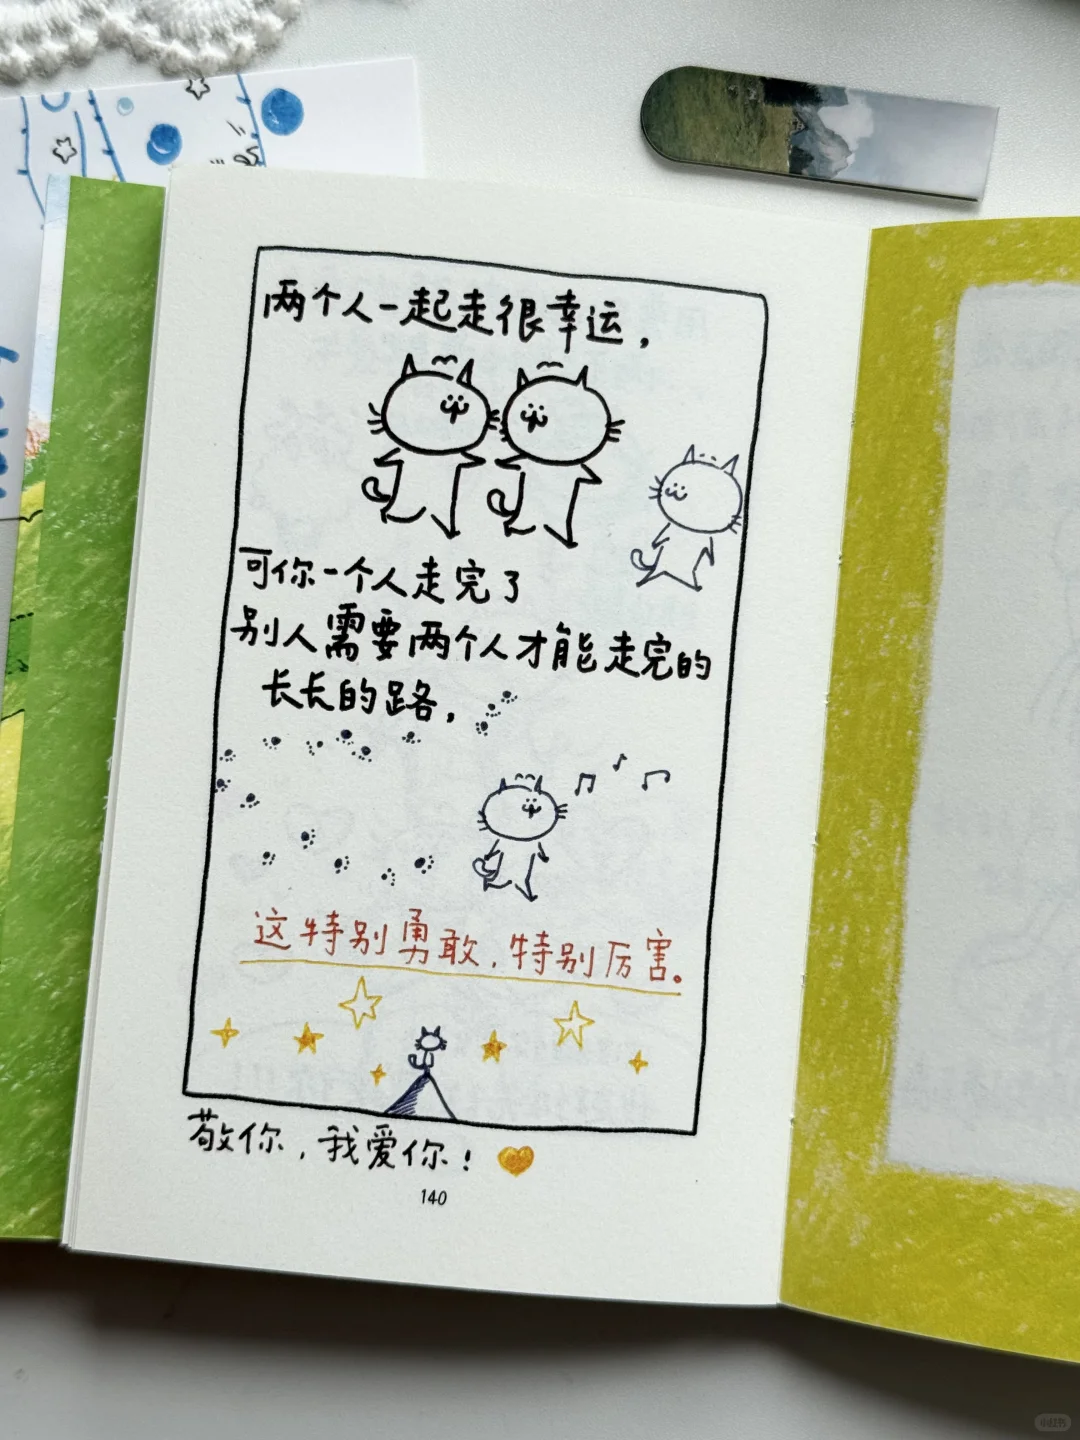 两个人一起走很幸运，
可你一个人走完了
别人需要两个人才能走完的
长长的路，
这特别勇敢，特别厉害。
敬你，我爱你！
140
小红书